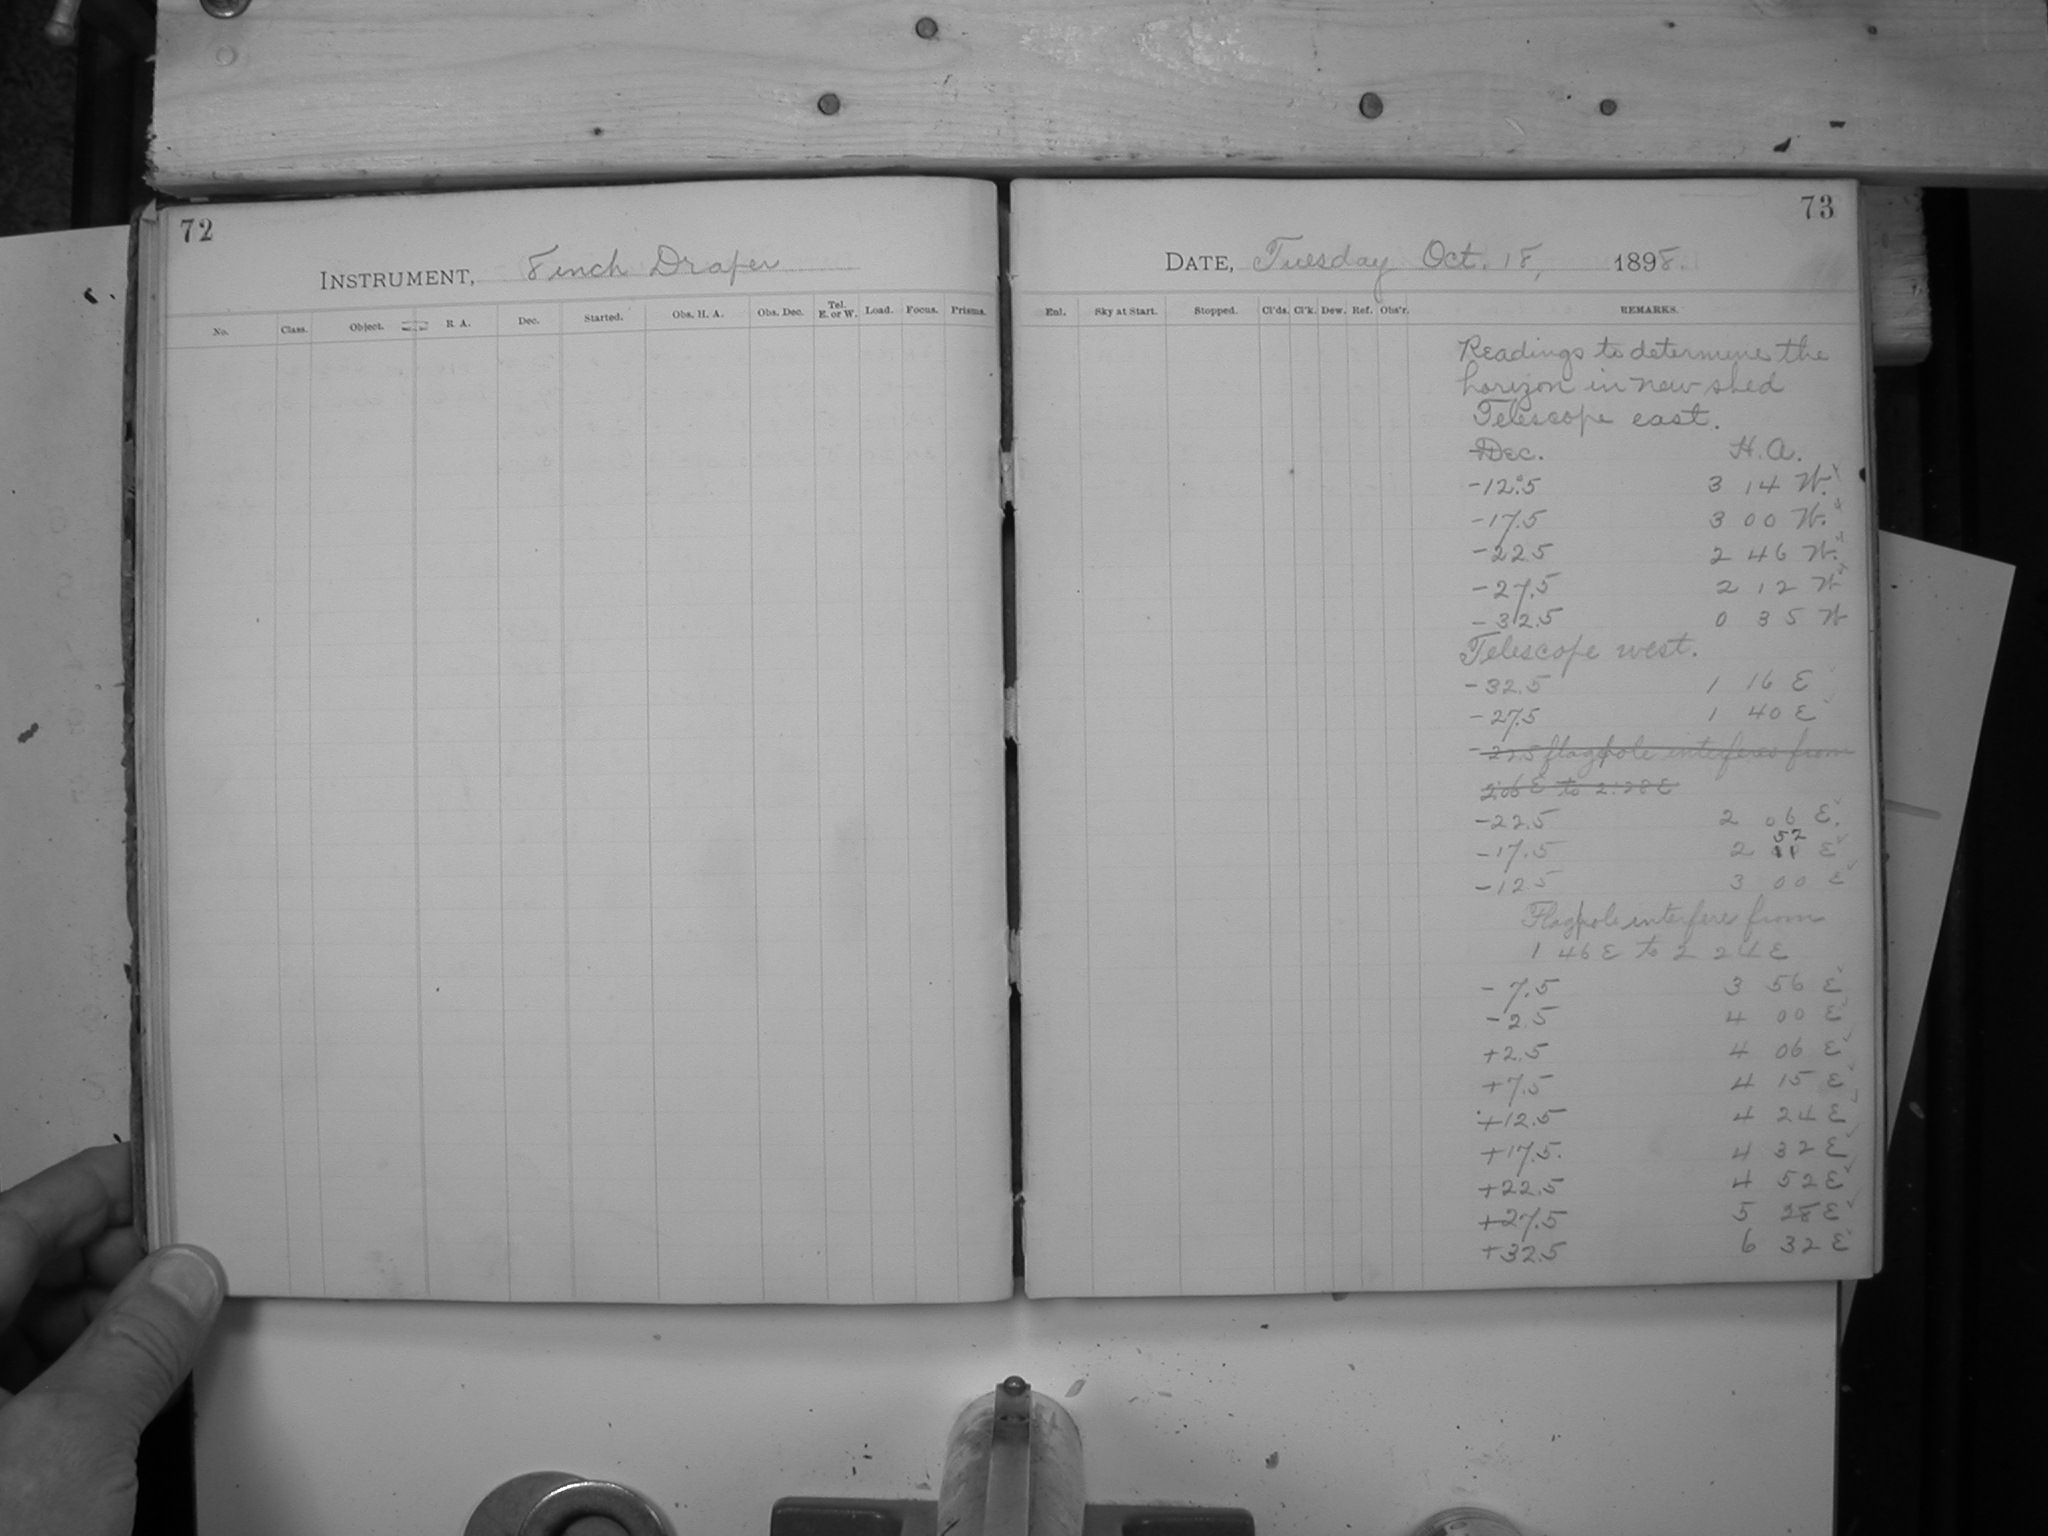 72
INSTRUMENT, 8 inch Draper
No. Class. Object. R. A. Dec. Started. Obs. H. A. Obs. Dec. Tel. E. or W. Load. Focus. Prisms.
73
DATE, Tuesday Oct. 18, 1898.
Enl. Sky at Start. Stopped. Cl'ds. Cl'k. Dew. Ref. Obs'r. REMARKS.
Readings to determine the
horizon in new shed
Telescope east.
Dec. H.A.
-12.°5 3 14 W.
-17.5 3 00 W.
-22.5 2 46 W.
-27.5 2 12 W
-32.5 0 35 W
Telescope west.
-32.5 1 16 E
-27.5 1 40 E
-22.5 flagpole interferes from
2:06 E to 2:28 E
-22.5 2 06 E.
52
-17.5 2 11 E
-12.5 3 00 E
Flagpole interfere from
1 46 E to 2 24 E
-7.5 3 56 E
-2.5 4 00 E
+2.5 4 06 E
+7.5 4 15 E
+12.5 4 24 E
+17.5. 4 32 E
+22.5 4 52 E
+27.5 5 E
+32.5 6 32 E